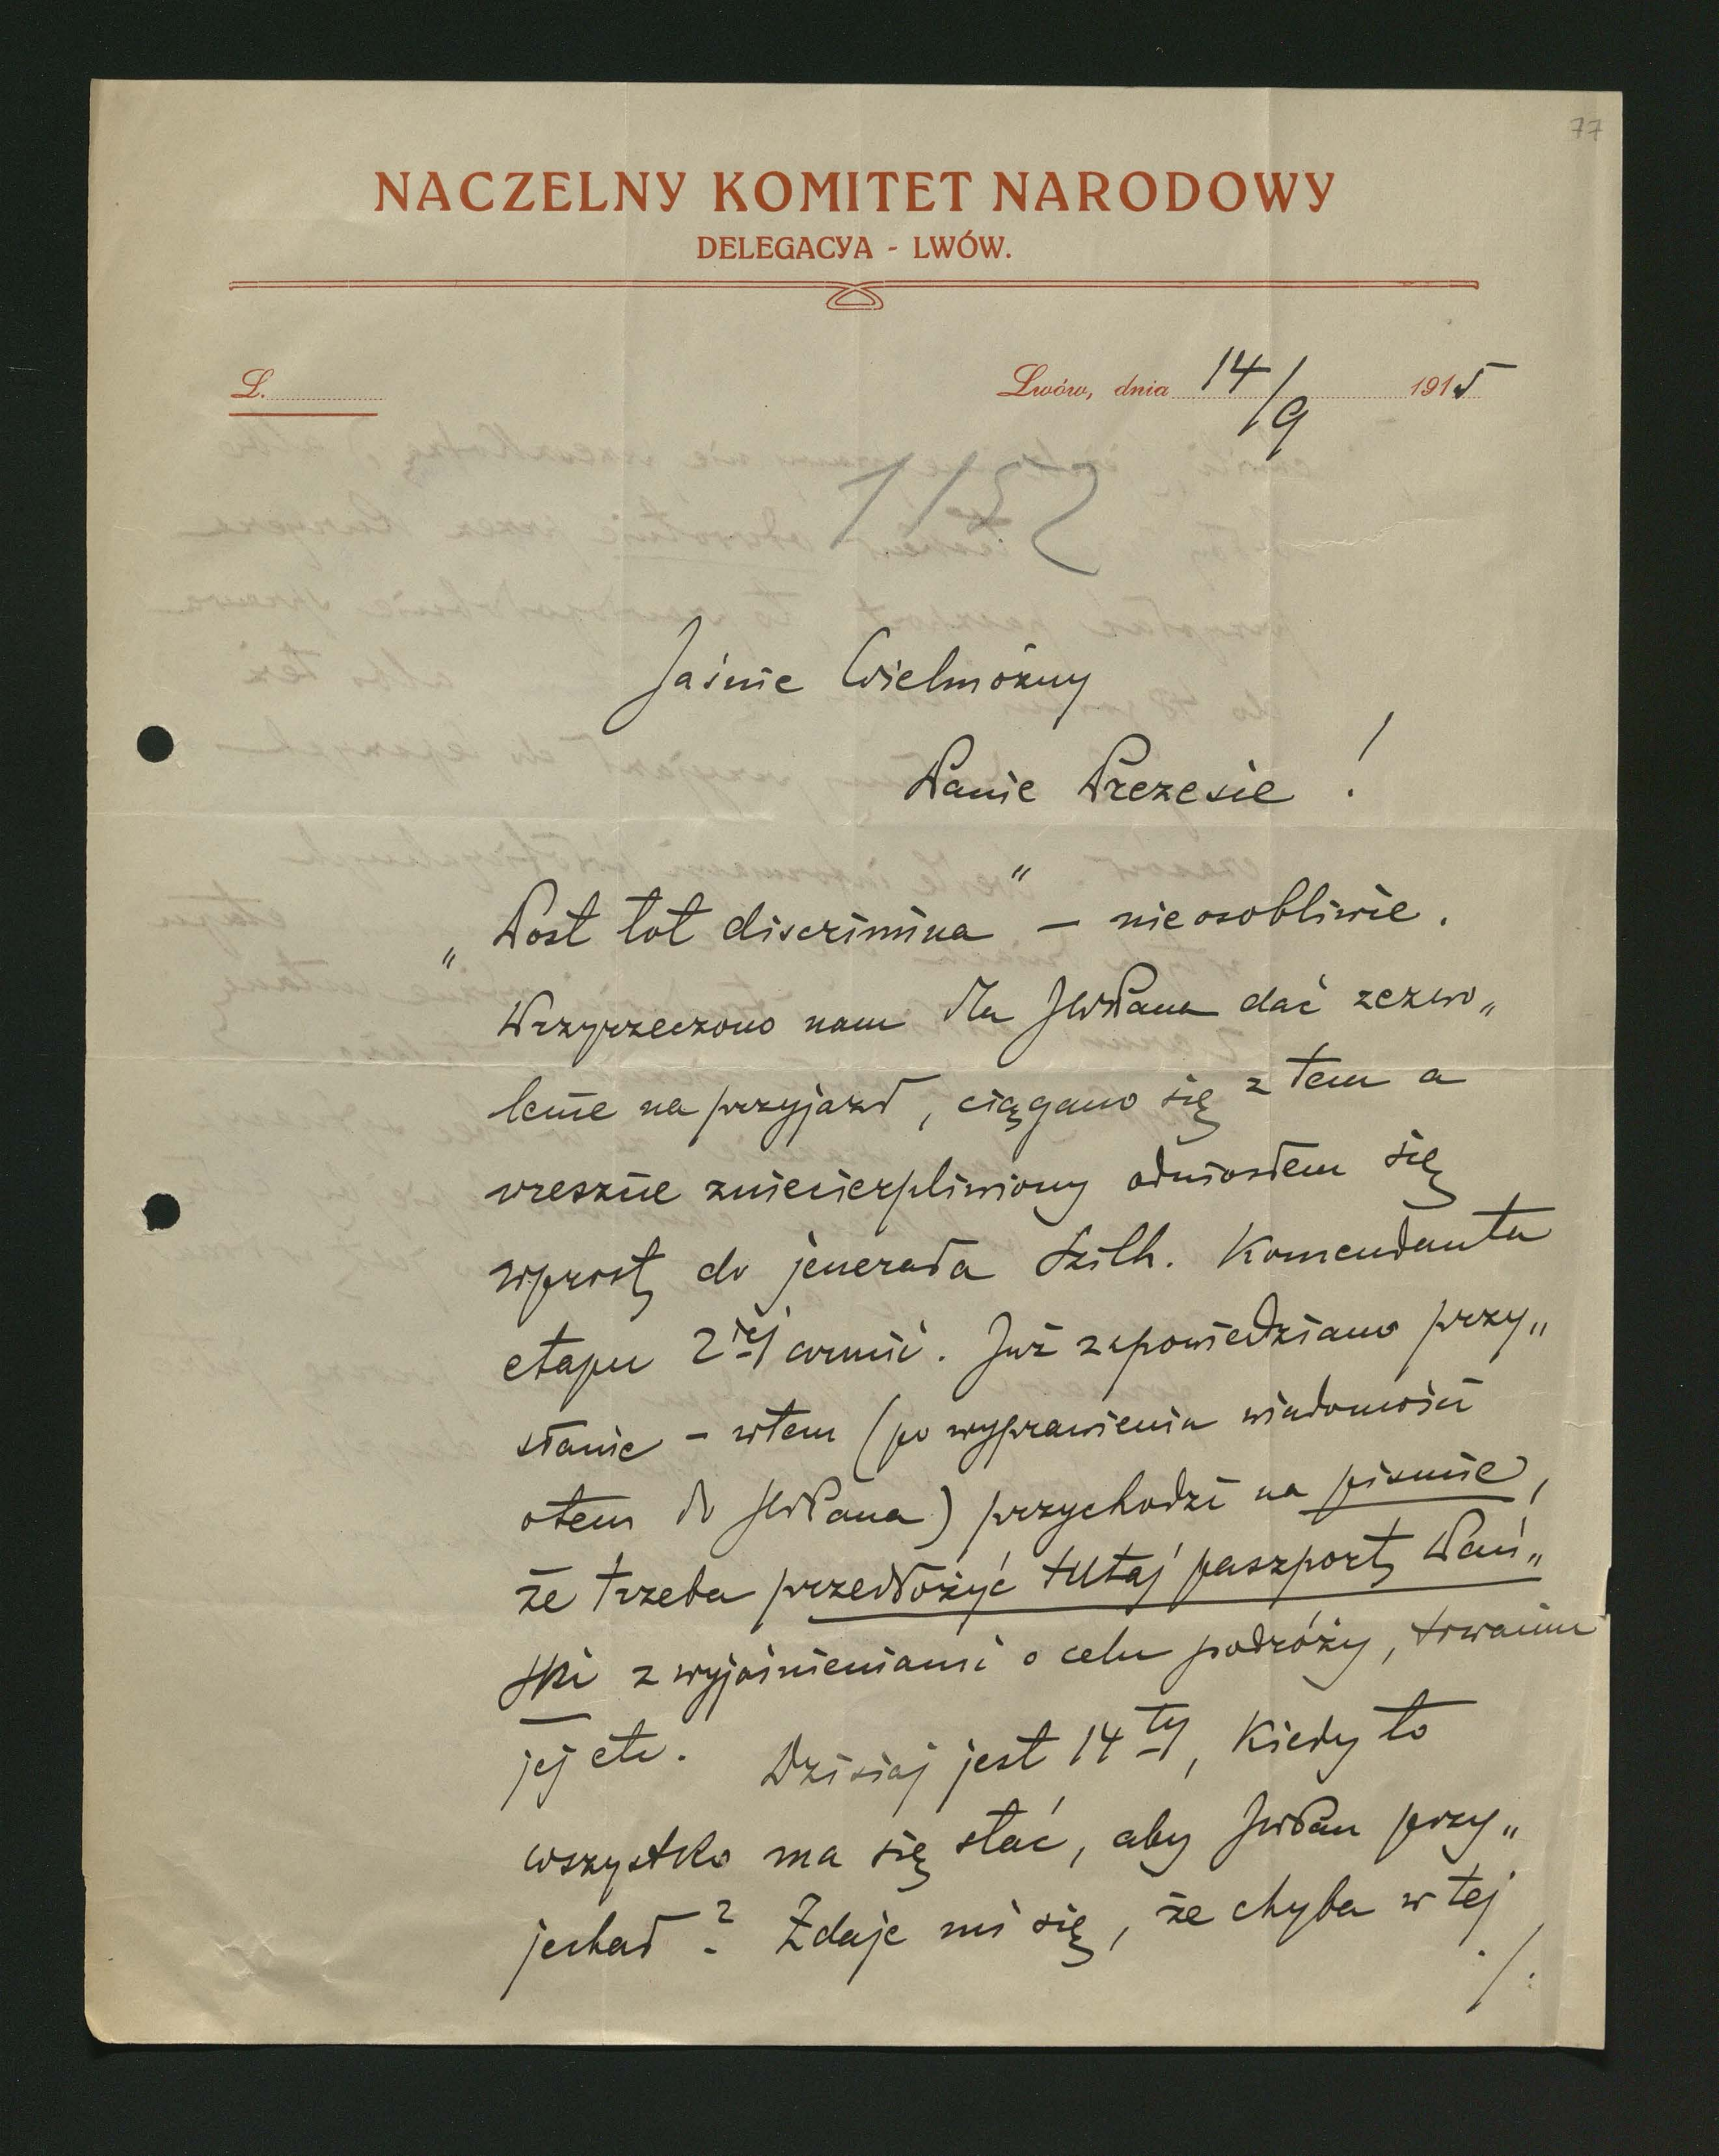 77
NACZELNY KOMITET NARODOWY
DELEGACYA - LWÓW.
L.
Lwów, dnia 14/9 1915
1152
Jaśnie Wielmożny
Panie Prezesie !
„Post tot discrimina" — nieosobliwie.
Przyrzeczono nam dla JWPana dać zezwo„
lenie na przyjazd, ciągano się z tem a
wreszcie zniecierpliwiony odniosłem się
wprost do jenerała Komendanta
etapu 2iej armii. Już zapowiedziano przy„
słanie - wtem (po wyprawieniu wiadomości
o tem do JWPana) przychodzi na piśmie,
że trzeba przedłożyć tutaj paszport Pań„
ski z wyjaśnieniami o celu podróży, trwaniu
jej etc. Dzisiaj jest 14ty, kiedy to
wszystko ma się stać, aby JWPan przy„
jechał? Zdaje mi się, że chyba w tej
./: